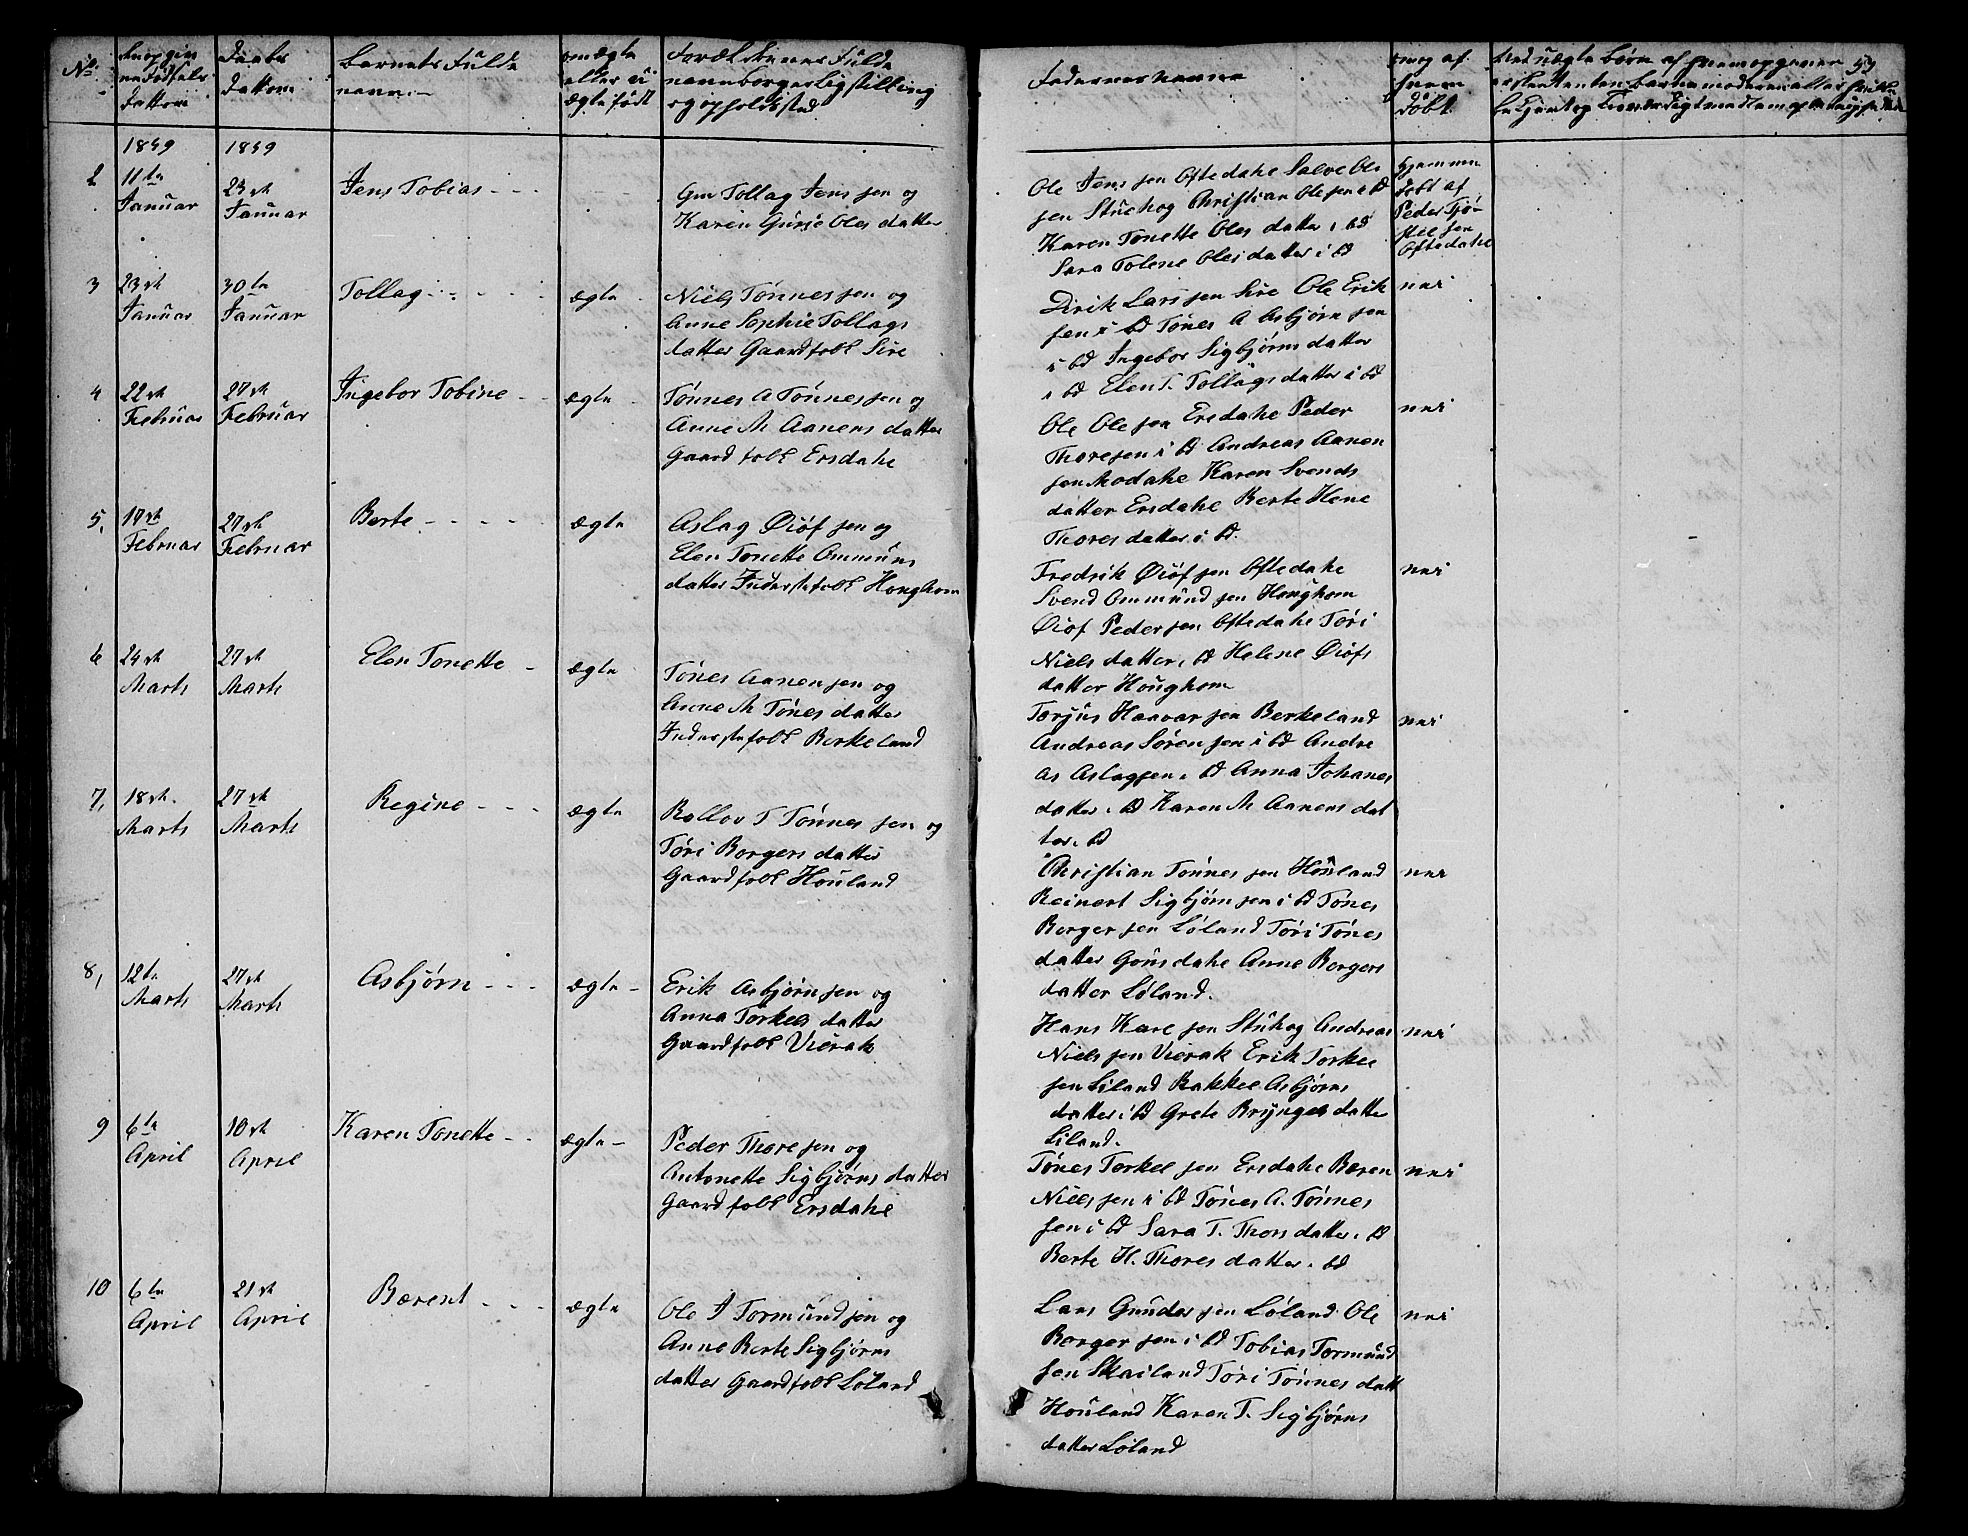 No.
Daabs
Dattom
Barnets Fulde
navn
om ægte
eller ü
ægte født
Forældrenes Fulde
navn borgerlig stilling
og opholdssted
Faderneres navne
og af
hvem
døbt
53
1859
1859
2
11te
Januar
23de
Januar
Jens Tobias
Gm Tollag Jens sen og
Karen Gurje Oles datter
Ole Jens sen Oftedahl Salve Ole
sen Stuehog Christian Ole sen i bd
Karen Tonette Oles datter i bd
Sara Tolene Oles datter i bd
hjemme
døbt af
Peder Tjø-
stel sen
Oftedahl
3
23de
Januar
30te
Januar
Tollag
ægte
Niels Tønnes sen og
Anne Sophie Tollags
datter Gaardfolk Sire
Dirik Lars sen Sire Ole Erik
sen i bd Tønes A Asbjørn sen
i bd Ingebor Sigbjørns datter
i bd Elen T. Tollags datter i bd
4
22de
Februar
27de
Februar
Ingebor Tobine
ægte
Tønnes A Tønnes sen og
Anne M Aanens datter
Gaard folk Ersdahl
Ole Ole sen Ersdahl Peder
Thore sen i bd Andreas Aanen
sen Modahl Karen Svends
datter Ersdahl Berte Hene
Thores datter i bd.
5,
17de
Februar
27de
Februar
Berte
ægte
Aslag Øiof sen og
Elen Tonette Ommuns
datter Inderstefolk Houghom
Fredrik Øiof sen Oftedahl
Svend Ommund sen Houghom
Øiof Peder sen Oftedahl Tøri
Niels datter i bd Helene Øiofs
datter Houghom
6
24de
Marts
27de
Marts
Elen Tonette
ægte
Tønes Aanen sen og
Anne M Tønes datter
Inderstefolk Birkeland
Torjus Haavar sen Berkeland
Andreas Søren sen i bd Andre
as Aslag sen i bd Anna Johanes
datter i bd Karen M Aanens dat
ter i bd
7,
18de
Marts
27de
Marts
Regine
ægte
Rollov T Tønnes sen og
Tøri Borgers datter
Gaardfolk Houland
Christian Tønnes sen Houland
Reinert Sigbjørn sen i bd Tønes
Borger sen Løland Tøri Tønes
datter Gousdahl Anne Borgers
datter Løland.
8,
12te
Marts
27de
Marts
Asbjørn
ægte
Erik Asbjørn sen og
Anna Torkels datter
Gaardfolk Virak
Hans Karl sen Stuhog Andreas
Niels sen Virak Erik Torkel
sen Liland Rakkel Asbjørns
datter i bd Grete Brynges datter
Liland.
9
6te
April
10de
April
Karen Tonette
ægte
Peder Thore sen og
Antonette Sigbjørns datter
Gaardfolk Ersdahl
Tønes Torkel sen Ersdahl Bæren
Niels sen i bd Tønes A. Tønnes
sen i bd Sara T. Thors datter i bd
Berte H. Thores datter i bd
10
6te
April
21de
April
Bærent
ægte
Ole J Tormund sen og
Anne Berte Sigbjørns
datter Gaardfolk Løland
Lars Gunder sen Løland Ole
Borger sen i bd Tobias Tormund
sen Skailand Tøri Tønnes datt
Houland Karen T. Sigbjørns
datter Løland